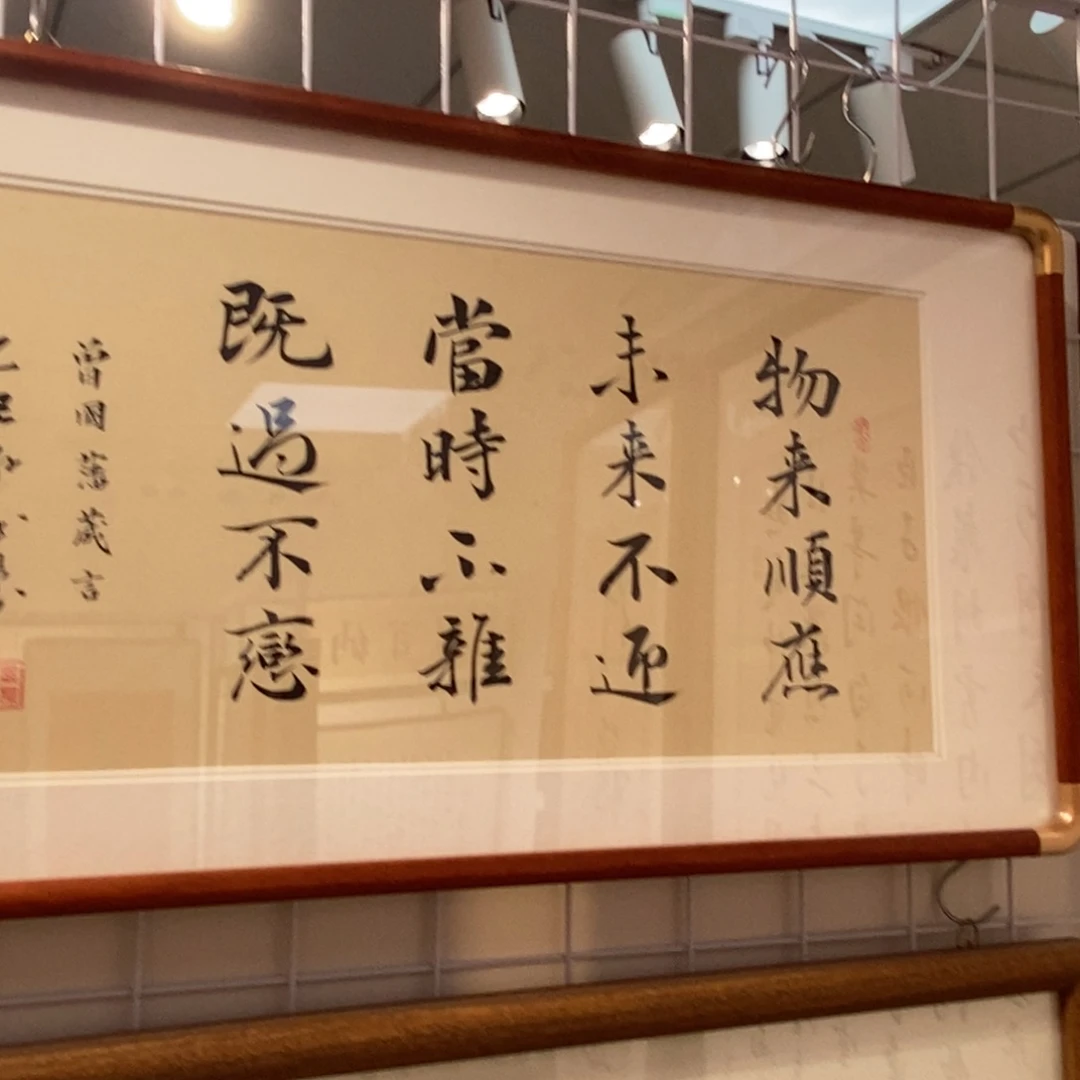 物来順應
未来不迎
當時不雜
既過不戀
曾國藩箴言